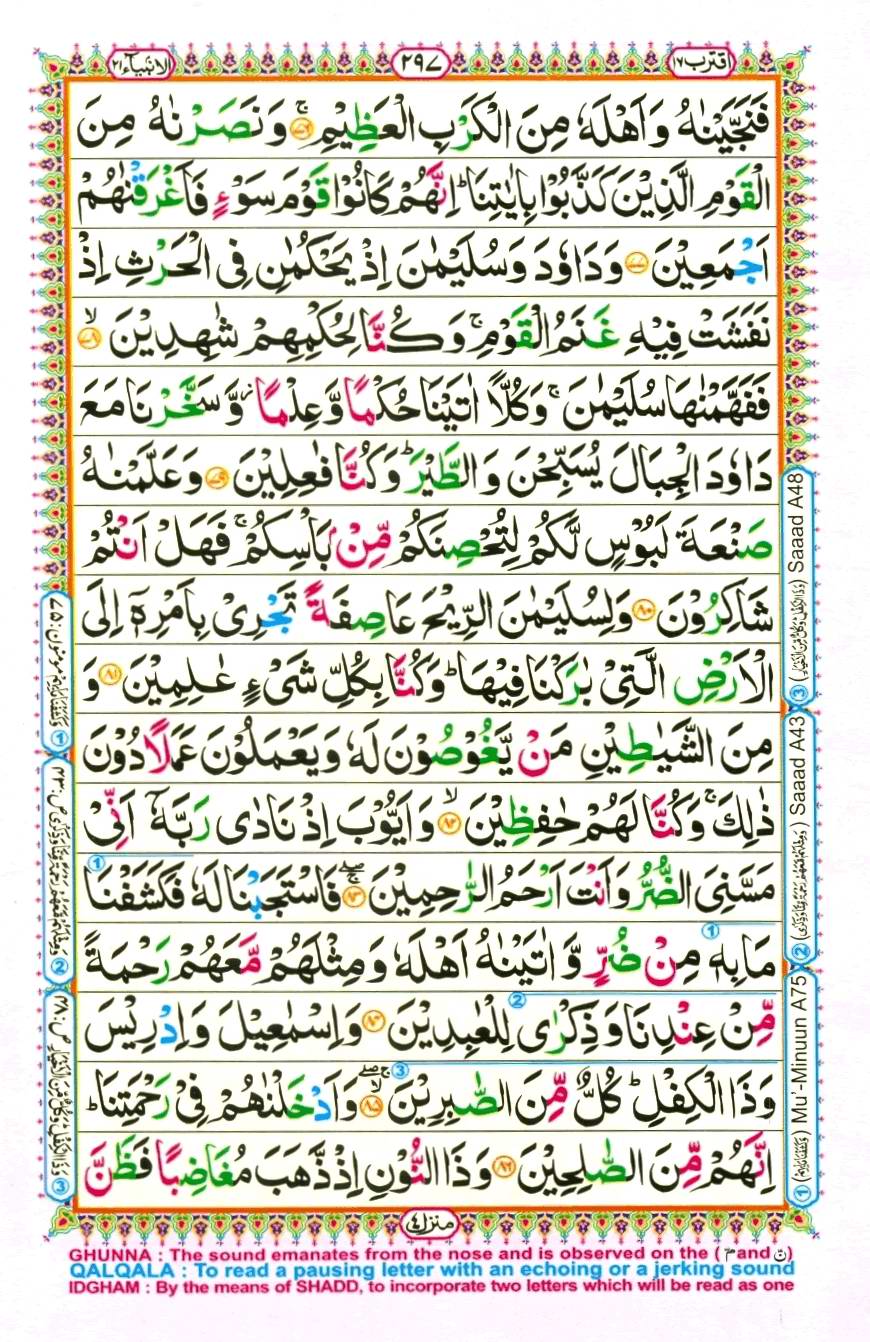 الانبياء٢١ ٢٩٧ قترب١٧
فَنَجَّيْنٰهُ وَاَهْلَهٗ مِنَ الْكَرْبِ الْعَظِيْمِ ۚ‏﴿۷۶﴾ وَنَصَرْنٰهُ مِنَ
الْقَوْمِ الَّذِيْنَ كَذَّبُوْا بِاٰيٰتِنَا ؕ اِنَّهُمْ كَانُوْا قَوْمَ سَوْءٍ فَاَغْرَقْنٰهُمْ
اَجْمَعِيْنَ ﴿۷۷﴾ وَدَاوٗدَ وَسُلَيْمٰنَ اِذْ يَحْكُمٰنِ فِى الْحَرْثِ اِذْ
نَفَشَتْ فِيْهِ غَنَمُ الْقَوْمِ ۚ وَكُنَّا لِحُكْمِهِمْ شٰهِدِيْنَ ۙ﴿۷۸﴾
فَفَهَّمْنٰهَا سُلَيْمٰنَ ۚ وَكُلًّا اٰتَيْنَا حُكْمًا وَّعِلْمًا ؗ وَّسَخَّرْنَا مَعَ
دَاوٗدَ الْجِبَالَ يُسَبِّحْنَ وَالطَّيْرَ ؕ وَكُنَّا فٰعِلِيْنَ ﴿۷۹﴾ وَعَلَّمْنٰهُ
صَنْعَةَ لَبُوْسٍ لَّكُمْ لِتُحْصِنَكُمْ مِّنْۢ بَاْسِكُمْ ۚ فَهَلْ اَنْتُمْ
شَاكِرُوْنَ ﴿۸۰﴾ وَلِسُلَيْمٰنَ الرِّيْحَ عَاصِفَةً تَجْرِىْ بِاَمْرِهٖۤ اِلَى
الْاَرْضِ الَّتِىْ بٰرَكْنَا فِيْهَا ؕ وَكُنَّا بِكُلِّ شَىْءٍ عٰلِمِيْنَ ﴿۸۱﴾ وَ
مِنَ الشَّيٰطِيْنِ مَنْ يَّغُوْصُوْنَ لَهٗ وَيَعْمَلُوْنَ عَمَلًا دُوْنَ
ذٰلِكَ ۚ وَكُنَّا لَهُمْ حٰفِظِيْنَ ۙ﴿۸۲﴾ وَاَيُّوْبَ اِذْ نَادٰى رَبَّهٗۤ اَنِّىْ
مَسَّنِىَ الضُّرُّ وَاَنْتَ اَرْحَمُ الرّٰحِمِيْنَ ۚۖ﴿۸۳﴾ فَاسْتَجَبْنَا لَهٗ فَكَشَفْنَا
مَا بِهٖ مِنْ ضُرٍّ وَّاٰتَيْنٰهُ اَهْلَهٗ وَمِثْلَهُمْ مَّعَهُمْ رَحْمَةً
مِّنْ عِنْدِنَا وَذِكْرٰى لِلْعٰبِدِيْنَ ﴿۸۴﴾ وَاِسْمٰعِيْلَ وَاِدْرِيْسَ
وَذَا الْكِفْلِ ؕ كُلٌّ مِّنَ الصّٰبِرِيْنَ ۚۖ﴿۸۵﴾ وَاَدْخَلْنٰهُمْ فِىْ رَحْمَتِنَا ؕ
اِنَّهُمْ مِّنَ الصّٰلِحِيْنَ ﴿۸۶﴾ وَذَا النُّوْنِ اِذْ ذَّهَبَ مُغَاضِبًا فَظَنَّ
منزل٤
③ Saaad A48
② Saaad A43
① Mu'-Minuun A75
GHUNNA : The sound emanates from the nose and is observed on the ( مّ and نّ )
QALQALA : To read a pausing letter with an echoing or a jerking sound
IDGHAM : By the means of SHADD, to incorporate two letters which will be read as one